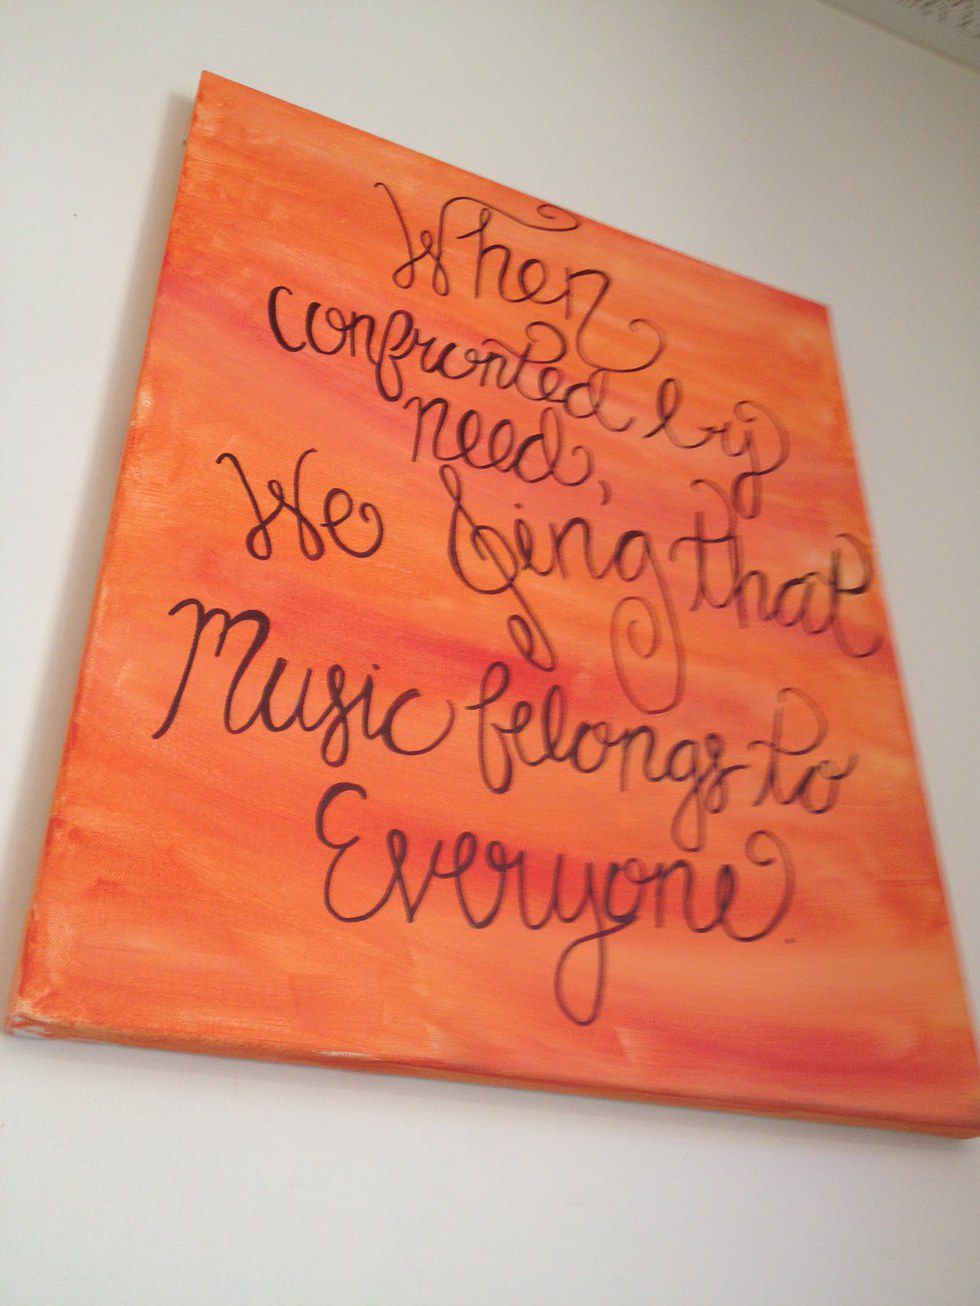 When
confronted by
need,
We Sing that
Music belongs to
Everyone.